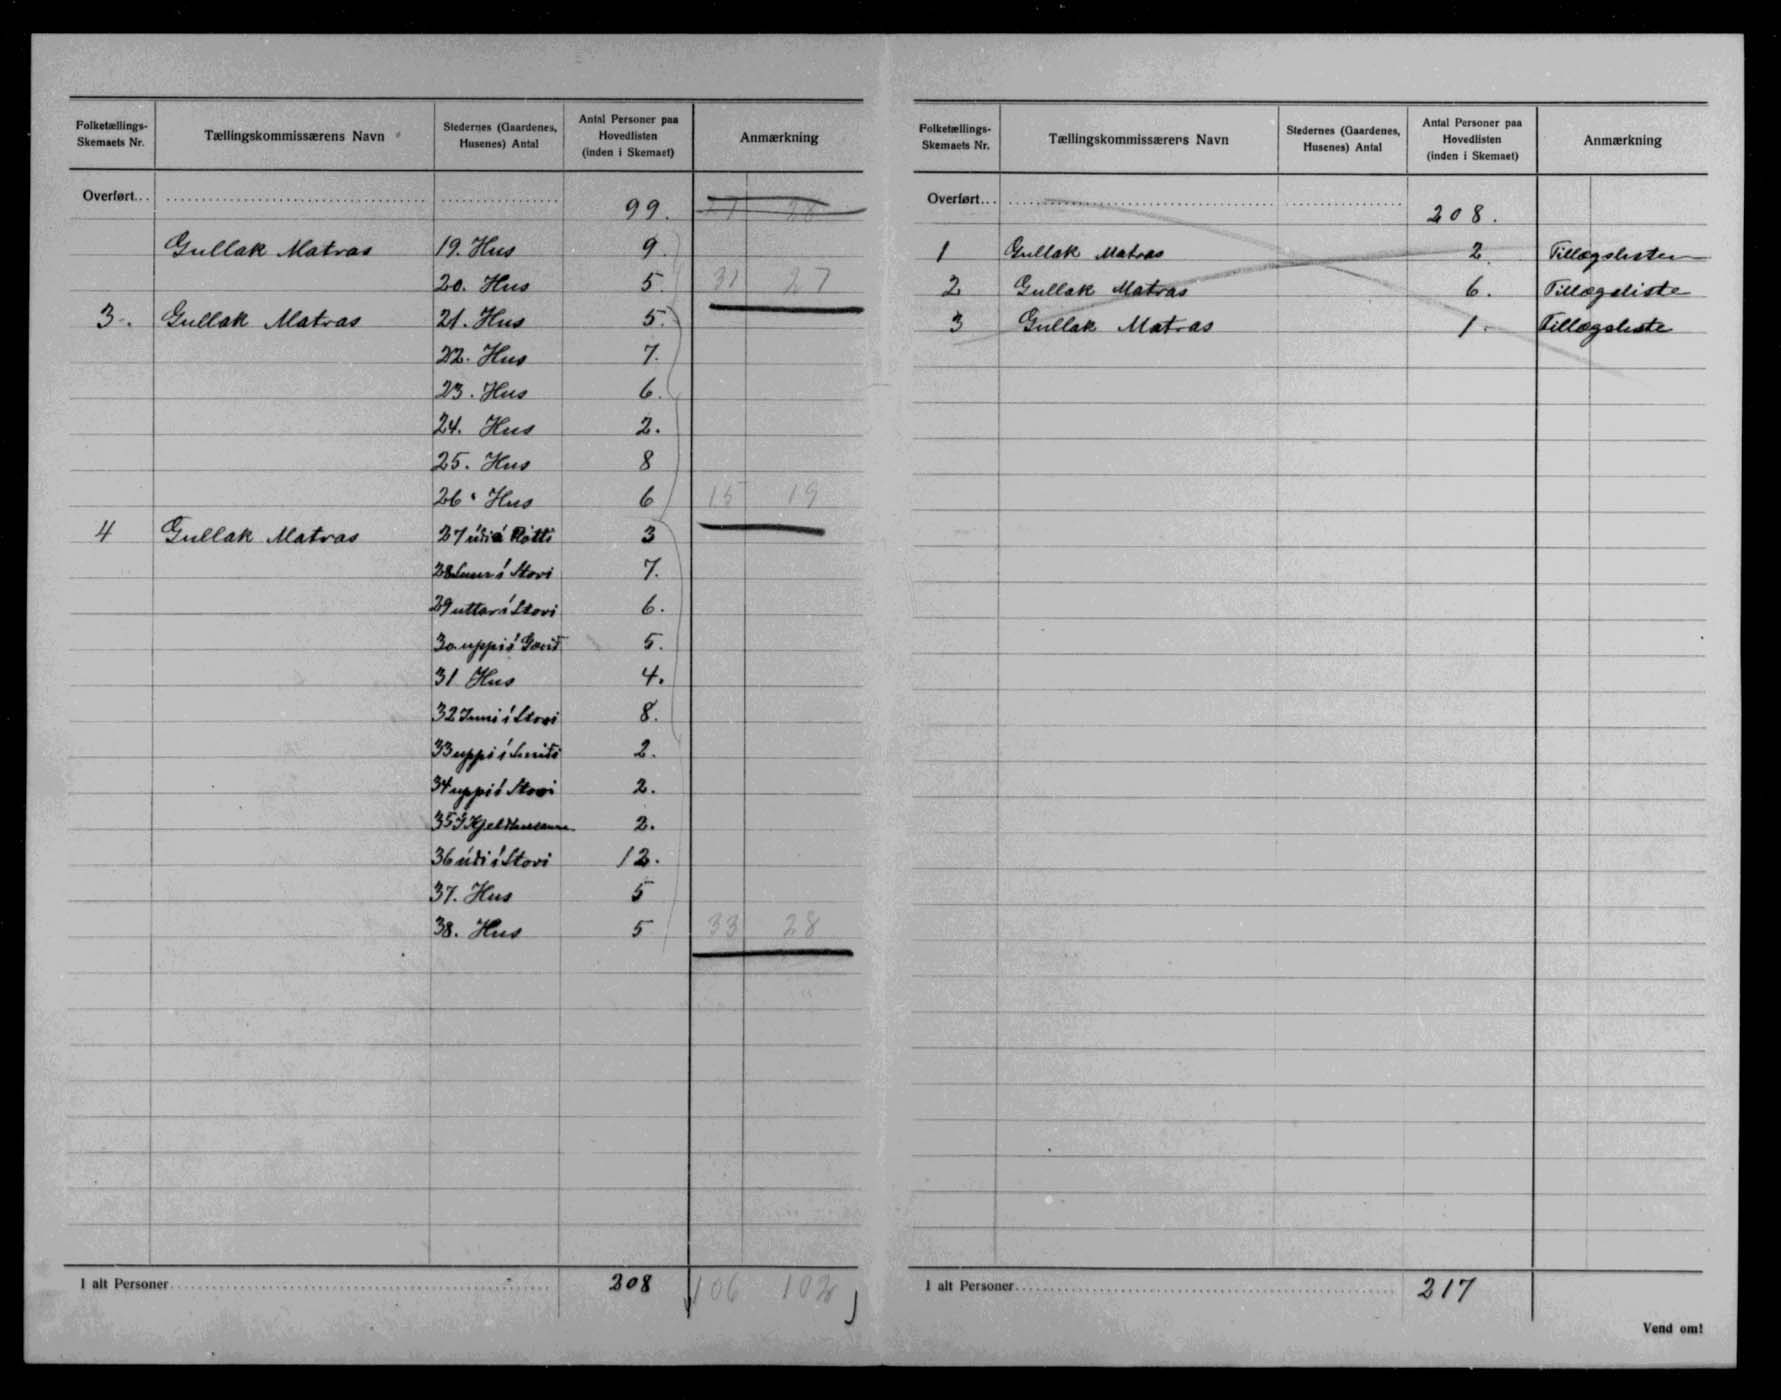 Folketællings-Skemaets Nr. Tællingskommissærens Navn Stedernes (Gaardenes, Husenes) Antal Antal Personer paa Hovedlisten (inden i Skemaet) Anmærkning
Overført... 99.
Gullak Matras 19. Hus 9.
20. Hus 5. 31 27
3. Gullak Matras 21. Hus 5.
22. Hus 7.
23. Hus 6.
24. Hus 2.
25. Hus 8
26. Hus 6 15 19
4 Gullak Matras 27 úði á 3
28 í Stovi 7.
29 uttar í Stovi 6.
30 uppi í 5.
31 Hus 4.
32 Inni í Stovi 8.
33 uppi í 2.
34 uppi í Stovi 2.
35 Í 2.
36 úði í Stovi 12.
37. Hus 5
38. Hus 5 33 28
I alt Personer 208 106 102
Folketællings-Skemaets Nr. Tællingskommissærens Navn Stedernes (Gaardenes, Husenes) Antal Antal Personer paa Hovedlisten (inden i Skemaet) Anmærkning
Overført... 208.
1 Gullak Matras 2. Tillægslisten
2 Gullak Matras 6. Tillægsliste
3 Gullak Matras 1. Tillægsliste
I alt Personer 217
Vend om!